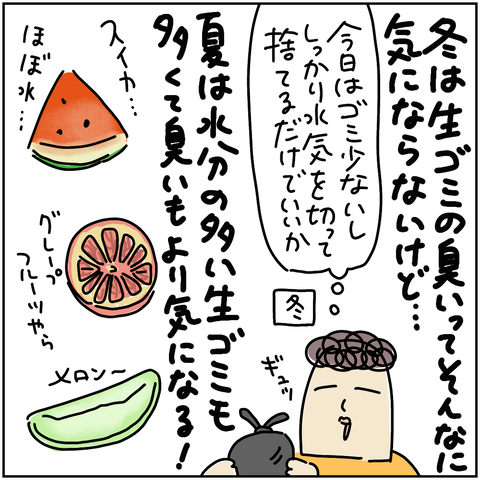 冬は生ゴミの臭いってそんなに
気にならないけど…
今日はゴミ少ないし
しっかり水気を切って
捨てるだけでいいか
冬
ギュッ
夏は水分の多い生ゴミも
多くて臭いもより気になる！
スイカ…
ほぼ水…
グレープ
フルーツやら
メロン〜